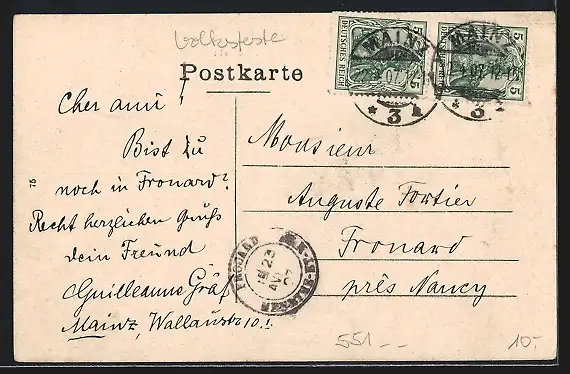 Volksfeste
Postkarte
DEUTSCHES REICH
5
5
DEUTSCHES REICH
5
5
MAINZ
07
* 3
MAINZ
07.12
* 3
Cher ami!
Bist du
noch in Fronard?
Recht herzlichen Gruß
dein Freund
Guilleaume Gräf
Mainz, Wallaustr 10.I.
75
Monsieur
Auguste Fortier
Fronard
près Nancy
FROUARD
MEURTHE-ET-M
23
07
551
10.-